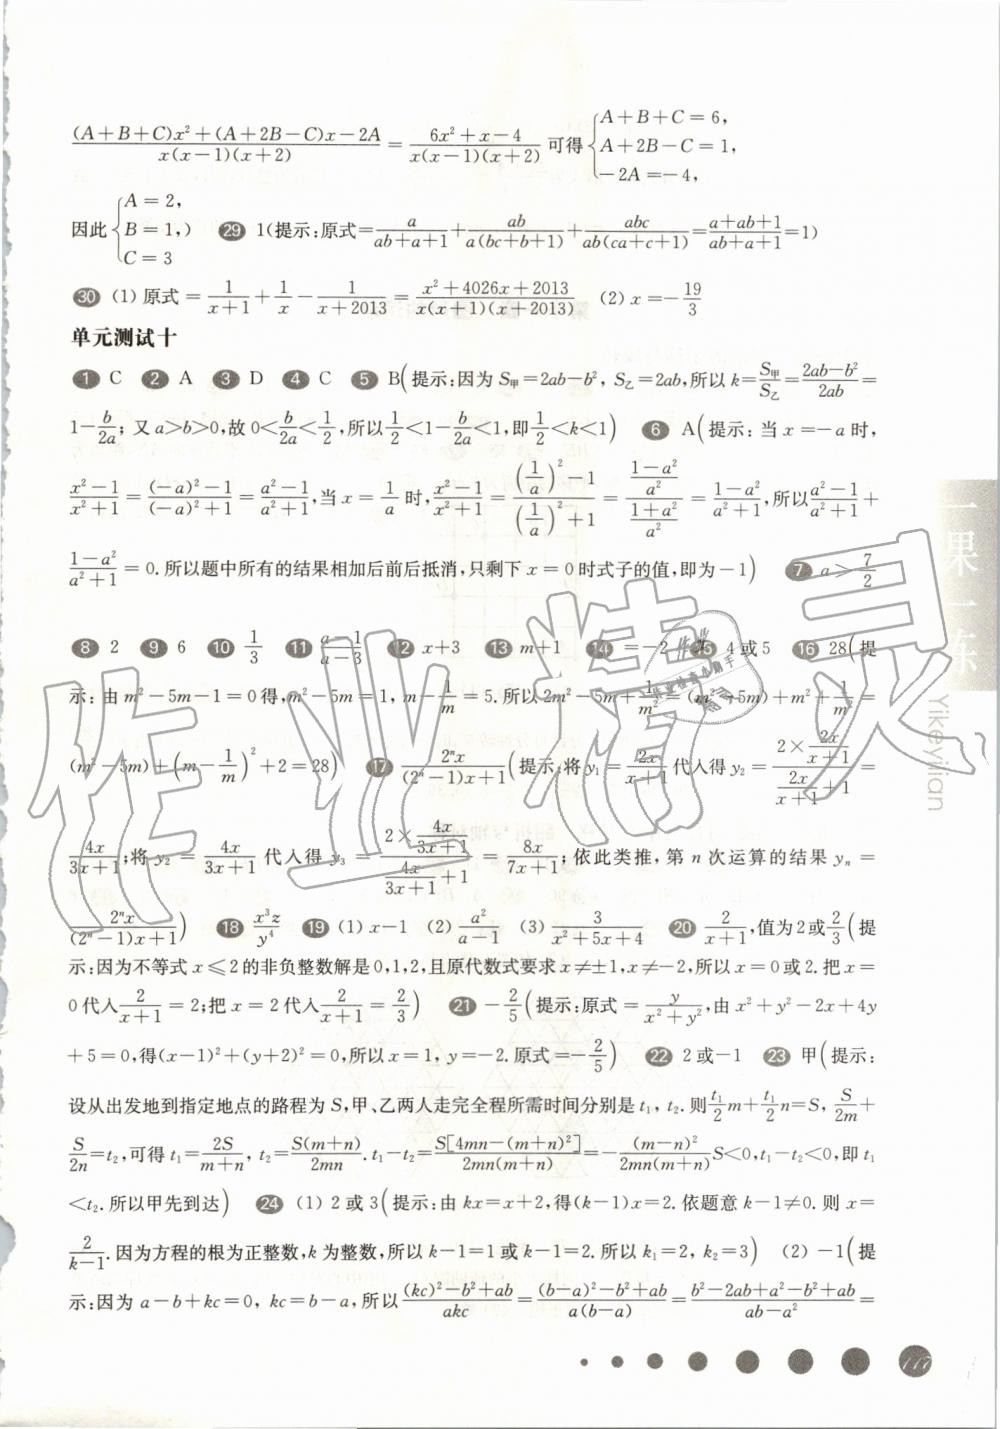 \frac{(A+B+C)x²+(A+2B−C)x−2A}{x(x−1)(x+2)} = \frac{6x²+x−4}{x(x−1)(x+2)} 可得 { A+B+C=6, A+2B−C=1, −2A=−4,
因此 { A=2, B=1, C=3 ) 29 1(提示:原式=\frac{a}{ab+a+1}+\frac{ab}{a(bc+b+1)}+\frac{abc}{ab(ca+c+1)}=\frac{a+ab+1}{ab+a+1}=1)
30 (1) 原式=\frac{1}{x+1}+\frac{1}{x}−\frac{1}{x+2013}=\frac{x²+4026x+2013}{x(x+1)(x+2013)} (2) x=−\frac{19}{3}
单元测试十
1 C 2 A 3 D 4 C 5 B(提示:因为 S甲=2ab−b², S乙=2ab,所以 k=\frac{S甲}{S乙}=\frac{2ab−b²}{2ab}=
1−\frac{b}{2a}; 又 a>b>0,故 0<\frac{b}{2a}<\frac{1}{2},所以\frac{1}{2}<1−\frac{b}{2a}<1,即\frac{1}{2}<k<1) 6 A(提示: 当 x=−a 时,
\frac{x²−1}{x²+1}=\frac{(−a)²−1}{(−a)²+1}=\frac{a²−1}{a²+1},当 x=\frac{1}{a} 时,\frac{x²−1}{x²+1}=\frac{(\frac{1}{a})²−1}{(\frac{1}{a})²+1}=\frac{\frac{1−a²}{a²}}{\frac{1+a²}{a²}}=\frac{1−a²}{a²+1},所以\frac{a²−1}{a²+1}+
\frac{1−a²}{a²+1}=0.所以题中所有的结果相加后前后抵消,只剩下 x=0时式子的值,即为−1) 7 a>\frac{7}{2}
8 2 9 6 10 \frac{1}{3} 11 \frac{a−1}{a−3} 12 x+3 13 m+1 14 =−2 15 4或5 16 28(提
示: 由 m²−5m−1=0得,m²−5m=1, m−\frac{1}{m}=5.所以2m²−5m+\frac{1}{m²}=(m²−5m)+m²+\frac{1}{m²}=
(m²−5m)+(m−\frac{1}{m})²+2=28) 17 \frac{2ⁿx}{(2ⁿ−1)x+1}(提示:将 y₁=\frac{2x}{x+1}代入得 y₂=\frac{2×\frac{2x}{x+1}}{\frac{2x}{x+1}+1}=
\frac{4x}{3x+1};将 y₂=\frac{4x}{3x+1} 代入得 y₃=\frac{2×\frac{4x}{3x+1}}{\frac{4x}{3x+1}+1}=\frac{8x}{7x+1};依此类推,第 n 次运算的结果 yₙ=
\frac{2ⁿx}{(2ⁿ−1)x+1}) 18 \frac{x³z}{y⁴} 19 (1) x−1 (2) \frac{a²}{a−1} (3) \frac{3}{x²+5x+4} 20 \frac{2}{x+1},值为2或\frac{2}{3}(提
示:因为不等式 x≤2的非负整数解是0,1,2,且原代数式要求 x≠±1,x≠−2,所以 x=0或2.把 x=
0代入\frac{2}{x+1}=2;把 x=2代入\frac{2}{x+1}=\frac{2}{3}) 21 −\frac{2}{5}(提示:原式=\frac{y}{x²+y²},由 x²+y²−2x+4y
+5=0,得(x−1)²+(y+2)²=0,所以 x=1, y=−2.原式=−\frac{2}{5}) 22 2或−1 23 甲(提示:
设从出发地到指定地点的路程为 S,甲、乙两人走完全程所需时间分别是 t₁, t₂.则\frac{t₁}{2}m+\frac{t₁}{2}n=S, \frac{S}{2m}+
\frac{S}{2n}=t₂,可得 t₁=\frac{2S}{m+n}, t₂=\frac{S(m+n)}{2mn}. t₁−t₂=\frac{S[4mn−(m+n)²]}{2mn(m+n)}=−\frac{(m−n)²}{2mn(m+n)}S<0,t₁−t₂<0,即 t₁
<t₂.所以甲先到达) 24 (1) 2或3(提示:由 kx=x+2,得(k−1)x=2.依题意 k−1≠0.则 x=
\frac{2}{k−1}.因为方程的根为正整数,k 为整数,所以 k−1=1或 k−1=2.所以 k₁=2, k₂=3) (2) −1(提
示:因为 a−b+kc=0, kc=b−a,所以\frac{(kc)²−b²+ab}{akc}=\frac{(b−a)²−b²+ab}{a(b−a)}=\frac{b²−2ab+a²−b²+ab}{ab−a²}=
一课一练
Yikeyilian
117
作业精灵
作业检查小助手